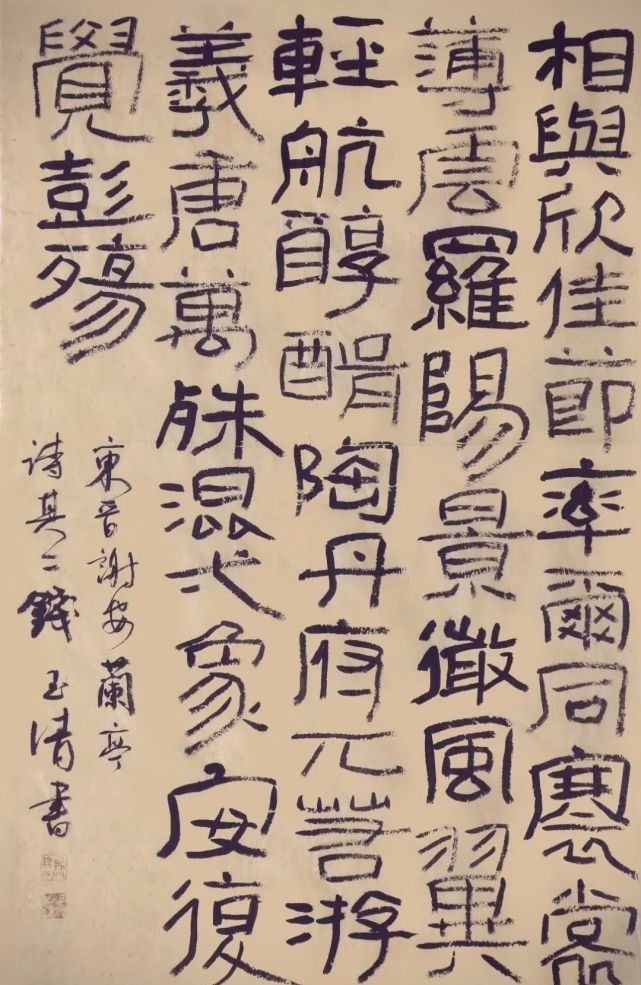 相與欣佳節率爾同褰裳
薄雲羅陽景微風翼
輕航醇醑陶丹府兀若游
羲唐萬殊混弌象安復
覺彭殤
東晉謝安蘭亭
诗其二錢玉清書